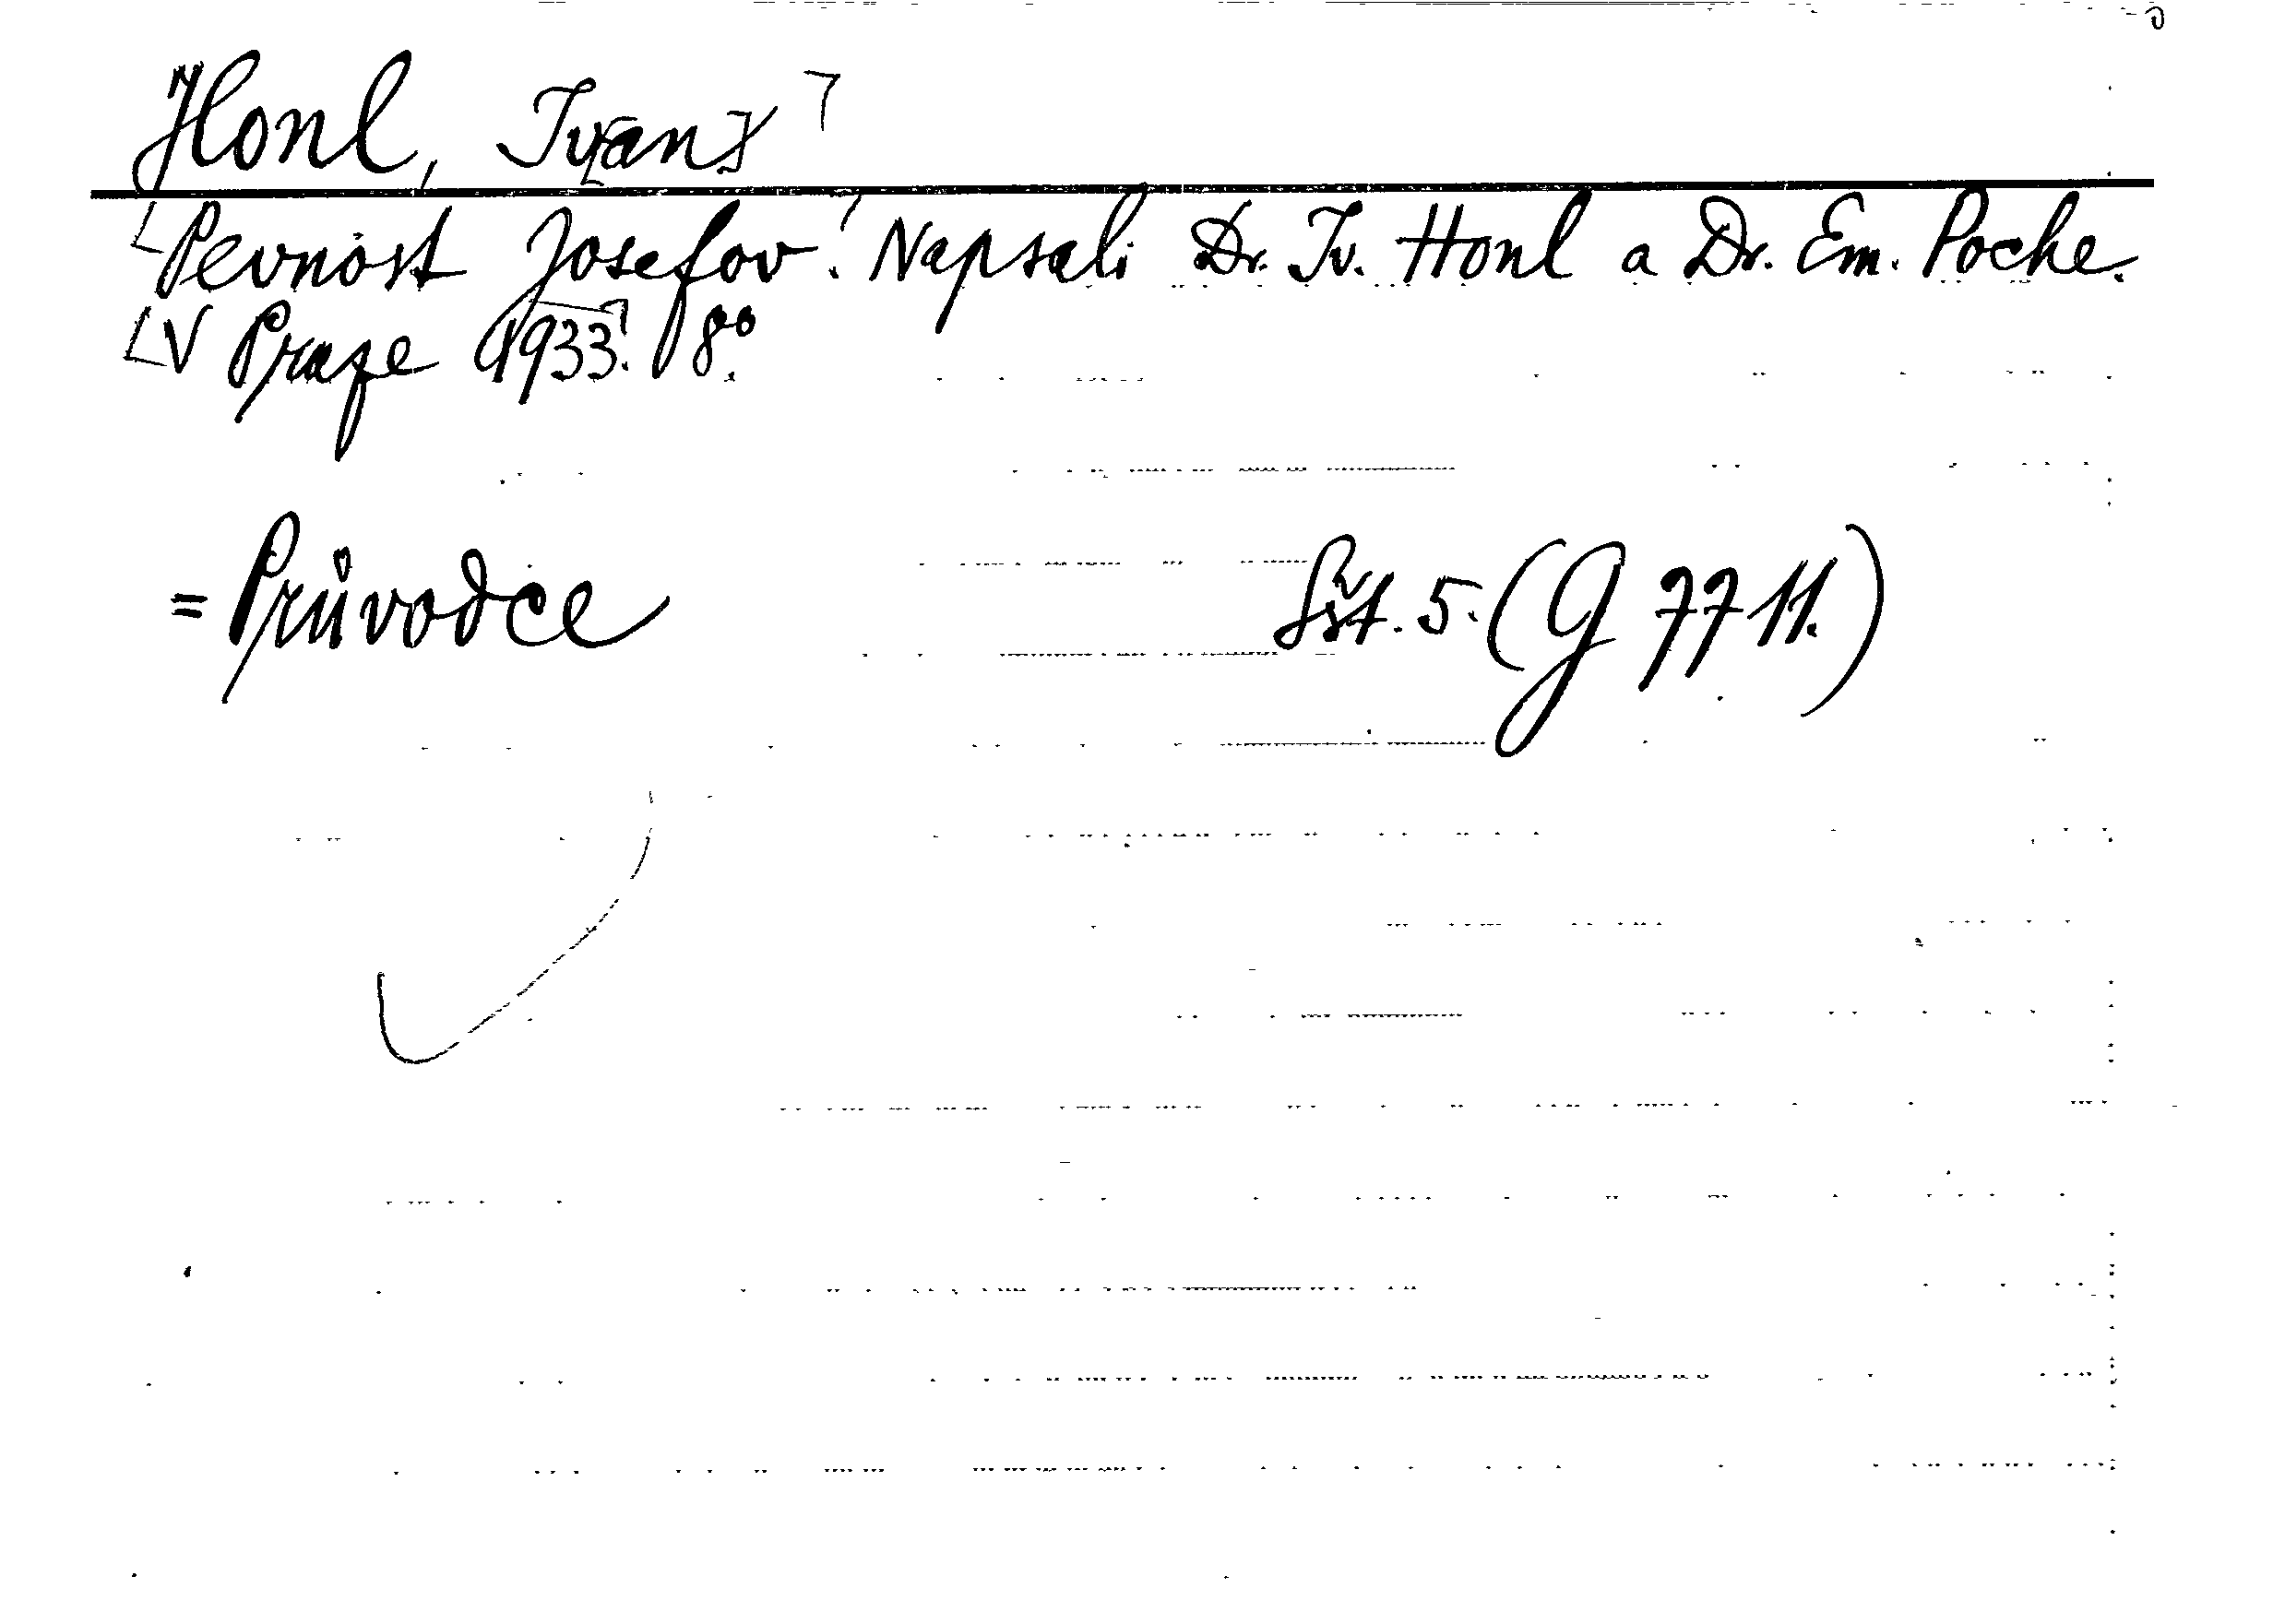 Honl, Iv[an]
Pevnost Josefov. Napsali Dr. Iv. Honl a Dr. Em. Poche.
V Praze 1933. 8°.
= Průvodce
5. (G 7711.)